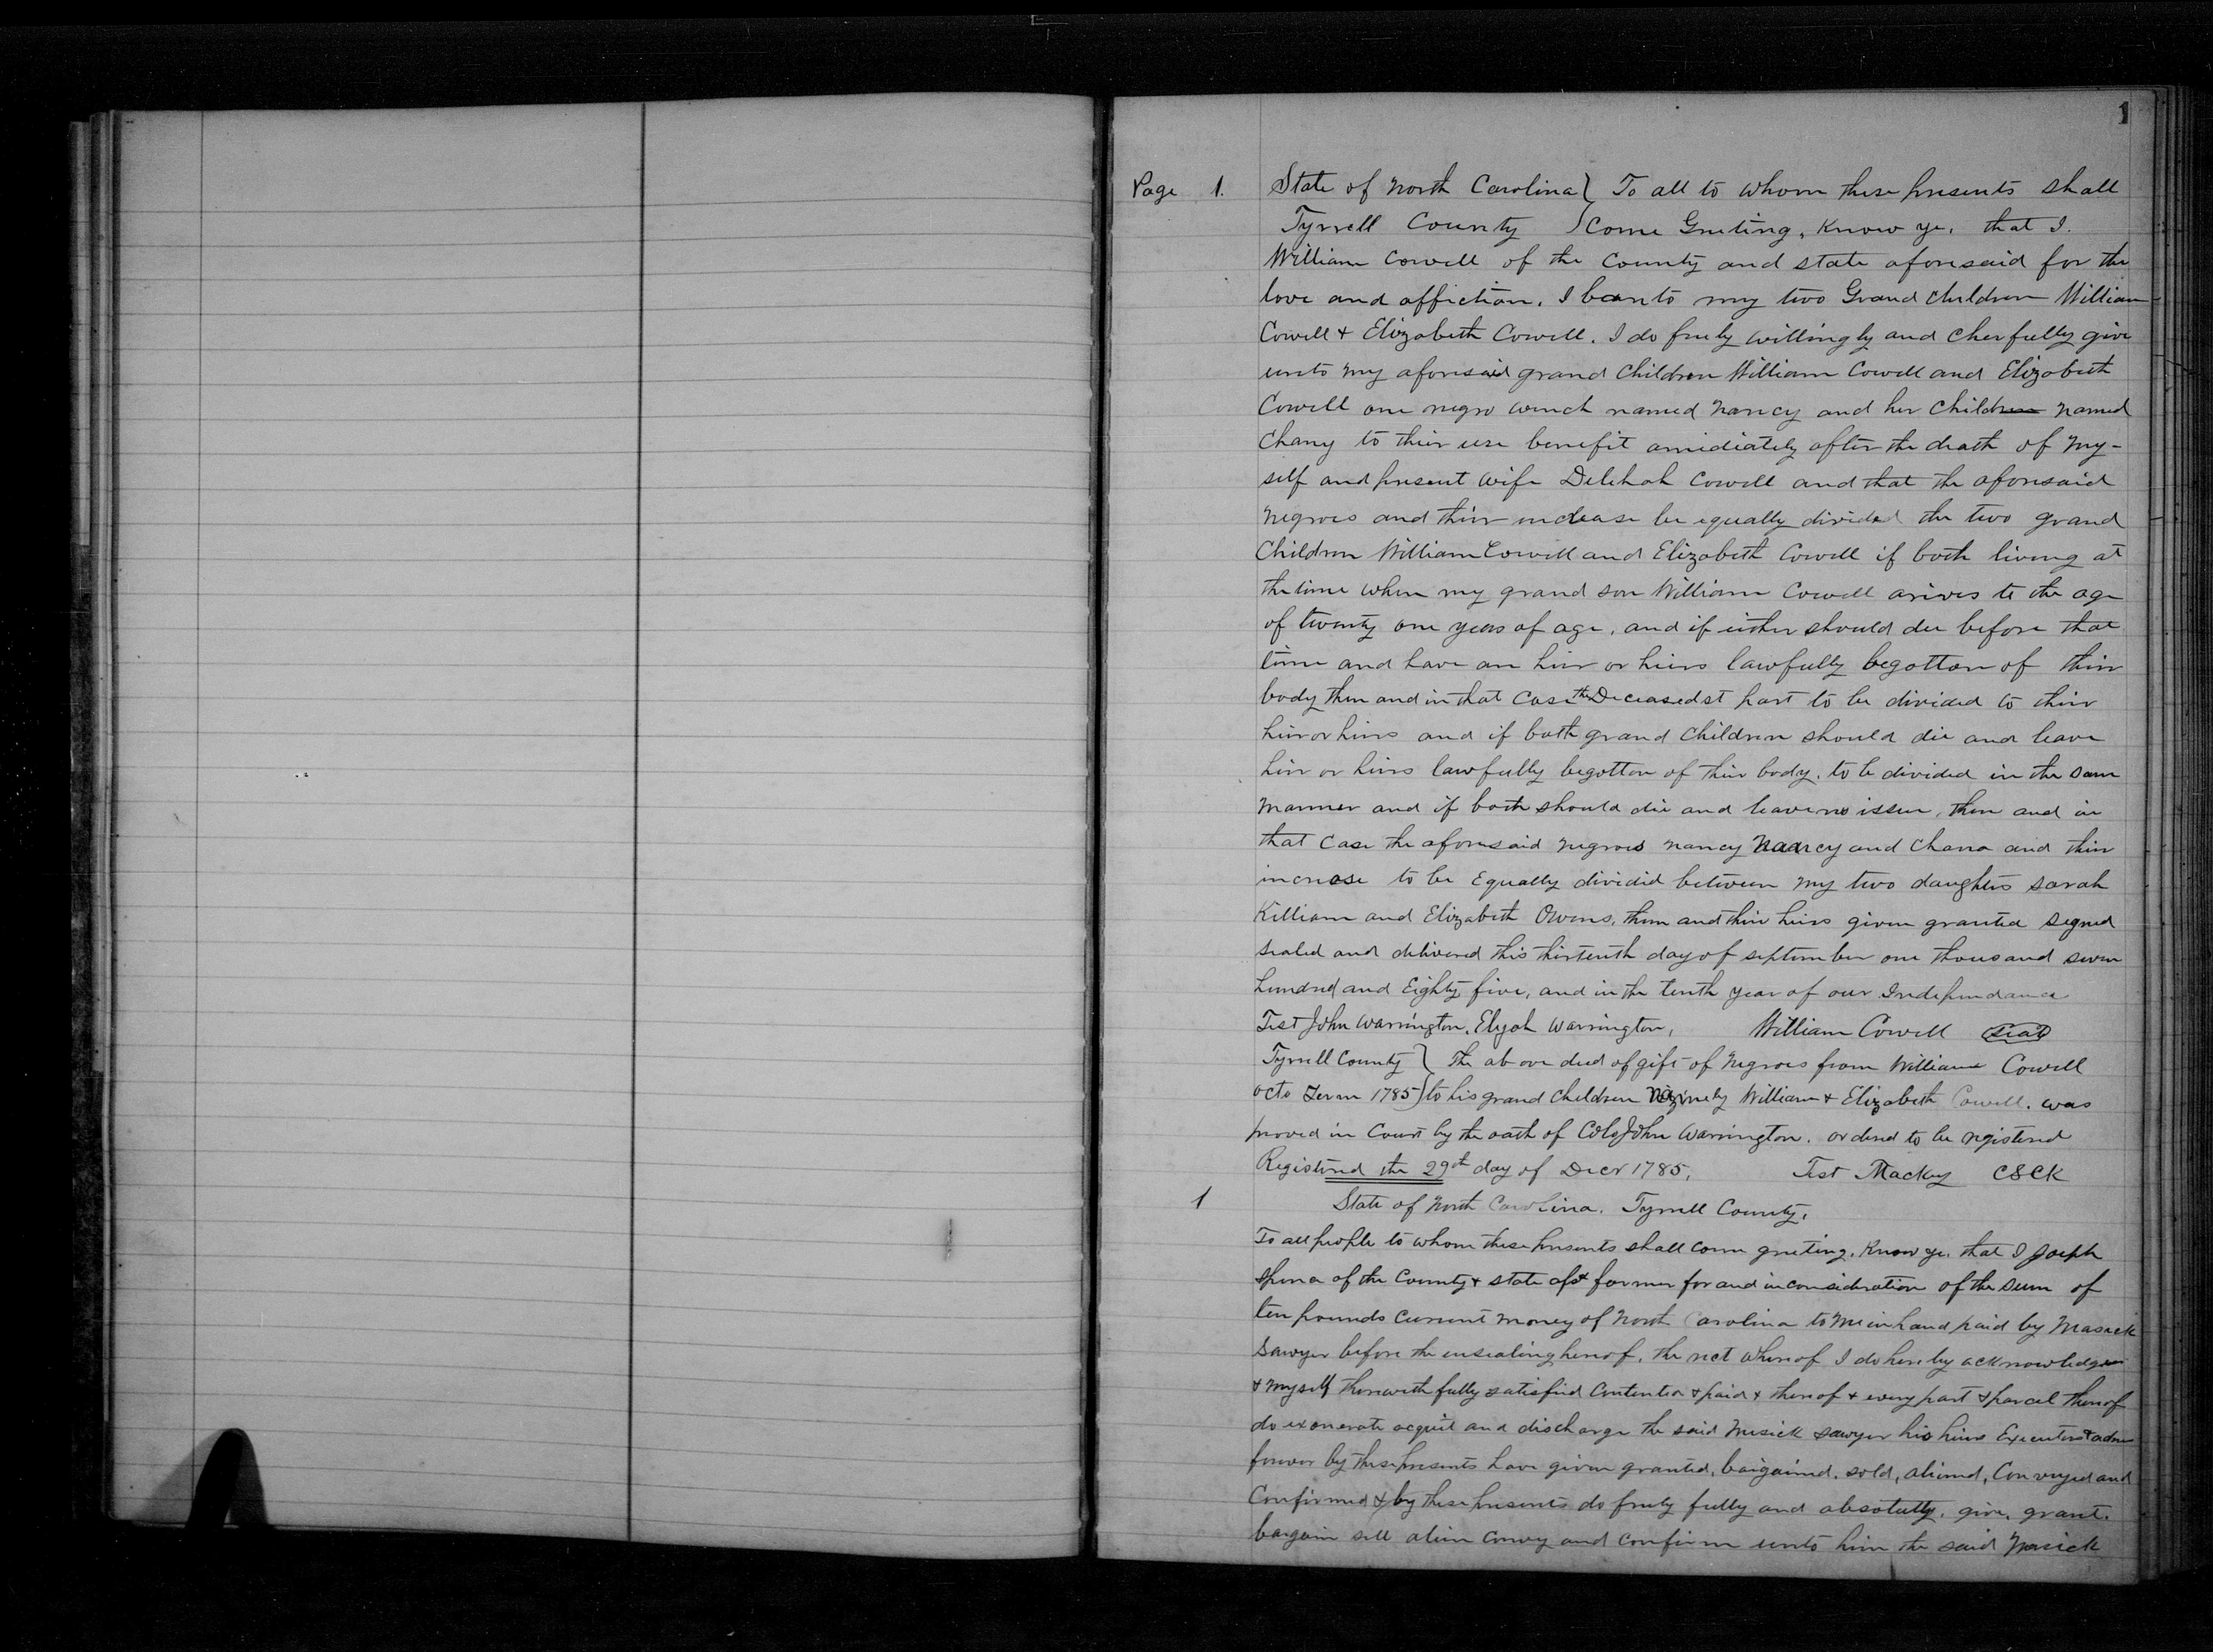 1
Page 1. State of North Carolina } To all to whom these presents shall
Tyrrell County } Come Greeting, Know ye, that I.
William Cowell of the County and state aforesaid for the
love and affiction, I bear to my two Grand children William
Cowell & Elizabeth Cowell. I do freely willingly and cherfully give
unto my aforesaid grand children William Cowell and Elizabeth
Cowell one negro wench named Nancy and her child named
Chany to their use benefit amidiately after the death of my-
self and present wife Delihah Cowell and that the aforesaid
negroes and their increase be equally divided the two grand
Children William Cowell and Elizabeth Cowell if both living at
the time when my grand son William Cowell arives to the age
of twenty one years of age, and if either should die before that
time and have an heir or heirs lawfully begotton of their
body then and in that case the Deceasedst part to be divided to their
heir or heirs and if both grand children should die and leave
heir or heirs lawfully begotton of their body, to be divided in the same
manner and if both should die and leave no issue, then and in
that case the aforesaid negroes nancy Nancy and Chana and their
increase to be Equally divided between my two daughters Sarah
Killiam and Elizabeth Owens, them and their heirs given granted signed
sealed and delivered this thirteenth day of september one thousand seven
hundred and Eighty five, and in the tenth year of our Independance
Test John Warrington, Elijah Warrington, William Cowell Seal
Tyrrell County } The above deed of gift of Negroes from William Cowell
octo Term 1785 } to his grand children namely William & Elizabeth Cowell. was
proved in Court by the oath of Colo John Warrington. ordered to be registered
Registered the 29th day of Decr 1785, Test Mackey C&CK
1 State of North Carolina. Tyrrell County,
To all people to whom these presents shall come greeting. Know ye. that I Joseph
of the County & state afsd farmer for and in consideration of the sum of
ten pounds current money of North Carolina to me in hand paid by Masick
Sawyer before the ensealing hereof, the rect whereof I do hereby acknowledge
& myself therewith fully satisfied contented & paid & thereof & every part & parcel thereof
do exonerate acquit and discharge the said Mesick Sawyer his heirs Executors & adm
forever by these presents have given granted, bargained, sold, aliened, Conveyed and
Confirmed & by these presents do freely fully and absolutely, give, grant.
bargain sell alien convey and confirm unto him the said Masick